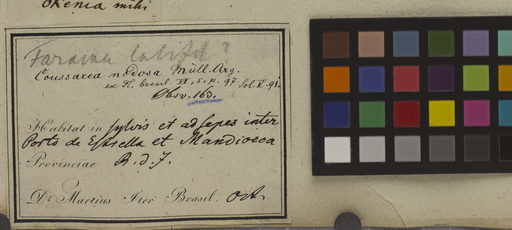 Okenia mihi
Faramea latifol?
Coussarea nodosa Müll. Arg.
ex Fl. brasil. VI, 5, p. 97 fol. V. 91.
Obsv. 163.
Habitat in sylvis et ad sepes inter
Porto de Estrella et Mandiocca
Provinciae R. d. J.
Dr Martius Iter Brasil. Oct.